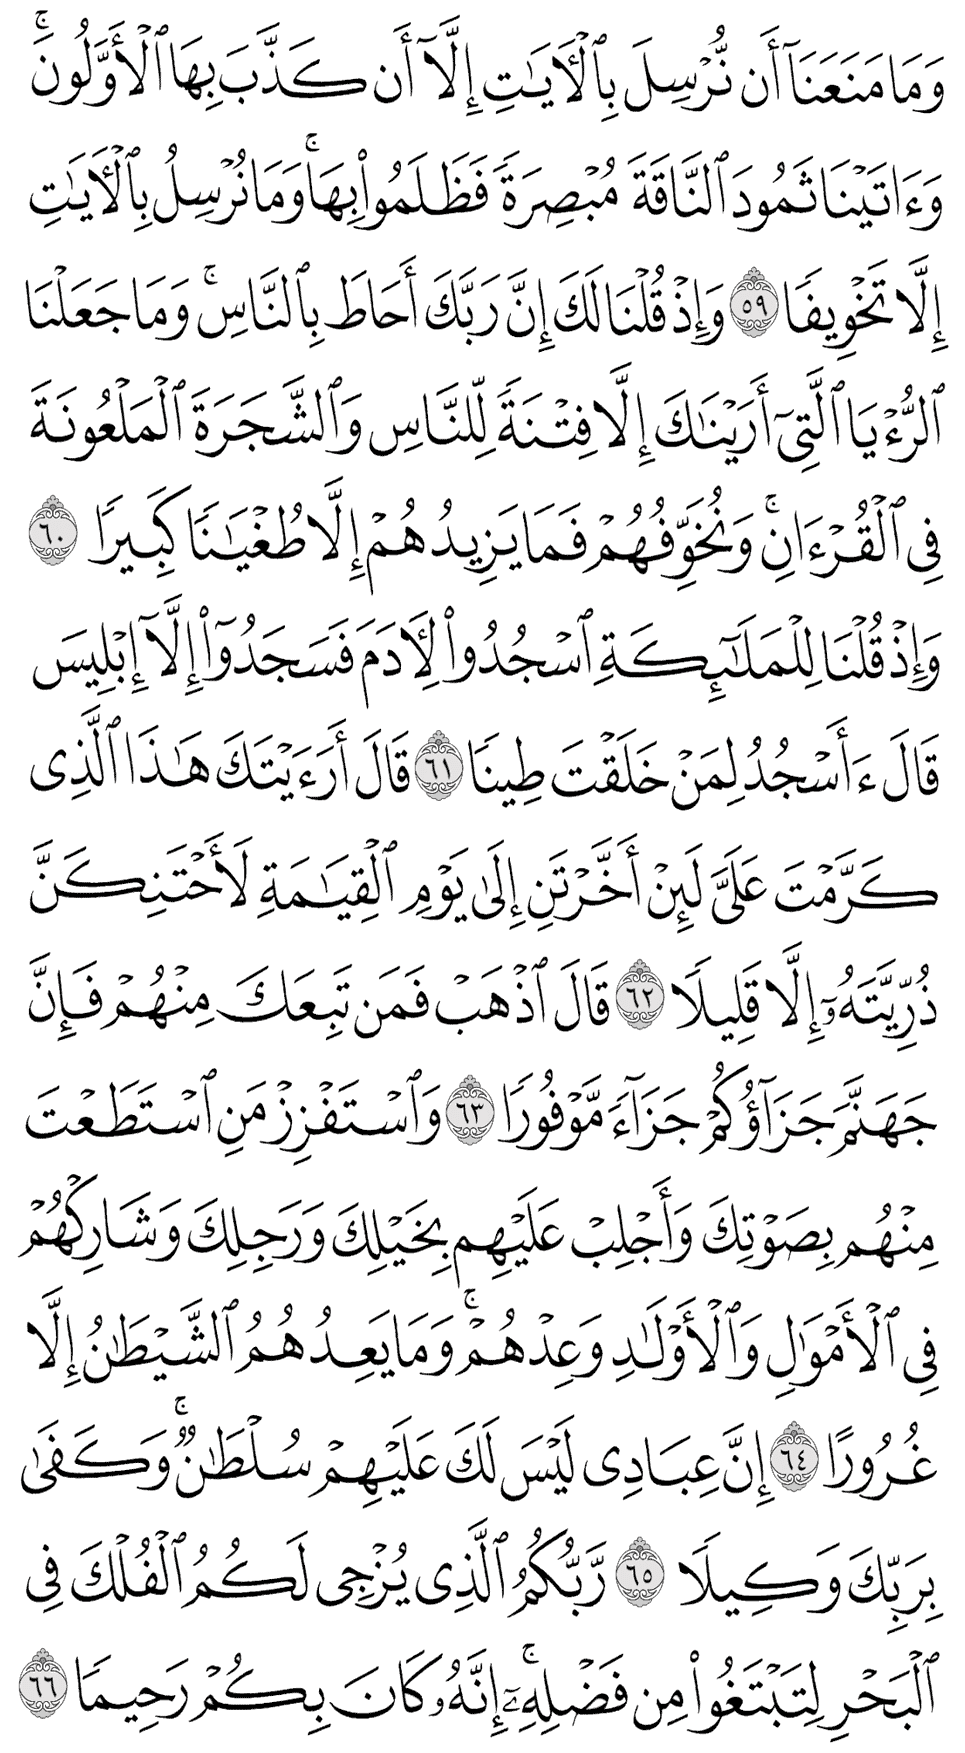 وَمَا مَنَعَنَآ أَن نُّرْسِلَ بِٱلْأَيَـٰتِ إِلَّآ أَن كَذَّبَ بِهَا ٱلْأَوَّلُونَ ۚ
وَءَاتَيْنَا ثَمُودَ ٱلنَّاقَةَ مُبْصِرَةً فَظَلَمُوا۟ بِهَا ۚ وَمَا نُرْسِلُ بِٱلْأَيَـٰتِ
إِلَّا تَخْوِيفًا ٥٩ وَإِذْ قُلْنَا لَكَ إِنَّ رَبَّكَ أَحَاطَ بِٱلنَّاسِ ۚ وَمَا جَعَلْنَا
ٱلرُّءْيَا ٱلَّتِىٓ أَرَيْنَـٰكَ إِلَّا فِتْنَةً لِّلنَّاسِ وَٱلشَّجَرَةَ ٱلْمَلْعُونَةَ
فِى ٱلْقُرْءَانِ ۚ وَنُخَوِّفُهُمْ فَمَا يَزِيدُهُمْ إِلَّا طُغْيَـٰنًا كَبِيرًا ٦٠
وَإِذْ قُلْنَا لِلْمَلَـٰٓئِكَةِ ٱسْجُدُوا۟ لِأَدَمَ فَسَجَدُوٓا۟ إِلَّآ إِبْلِيسَ
قَالَ ءَأَسْجُدُ لِمَنْ خَلَقْتَ طِينًا ٦١ قَالَ أَرَءَيْتَكَ هَـٰذَا ٱلَّذِى
كَرَّمْتَ عَلَىَّ لَئِنْ أَخَّرْتَنِ إِلَىٰ يَوْمِ ٱلْقِيَـٰمَةِ لَأَحْتَنِكَنَّ
ذُرِّيَّتَهُۥٓ إِلَّا قَلِيلًا ٦٢ قَالَ ٱذْهَبْ فَمَن تَبِعَكَ مِنْهُمْ فَإِنَّ
جَهَنَّمَ جَزَآؤُكُمْ جَزَآءً مَّوْفُورًا ٦٣ وَٱسْتَفْزِزْ مَنِ ٱسْتَطَعْتَ
مِنْهُم بِصَوْتِكَ وَأَجْلِبْ عَلَيْهِم بِخَيْلِكَ وَرَجِلِكَ وَشَارِكْهُمْ
فِى ٱلْأَمْوَٰلِ وَٱلْأَوْلَـٰدِ وَعِدْهُمْ ۚ وَمَا يَعِدُهُمُ ٱلشَّيْطَـٰنُ إِلَّا
غُرُورًا ٦٤ إِنَّ عِبَادِى لَيْسَ لَكَ عَلَيْهِمْ سُلْطَـٰنٌ ۚ وَكَفَىٰ
بِرَبِّكَ وَكِيلًا ٦٥ رَّبُّكُمُ ٱلَّذِى يُزْجِى لَكُمُ ٱلْفُلْكَ فِى
ٱلْبَحْرِ لِتَبْتَغُوا۟ مِن فَضْلِهِۦٓ ۚ إِنَّهُۥ كَانَ بِكُمْ رَحِيمًا ٦٦